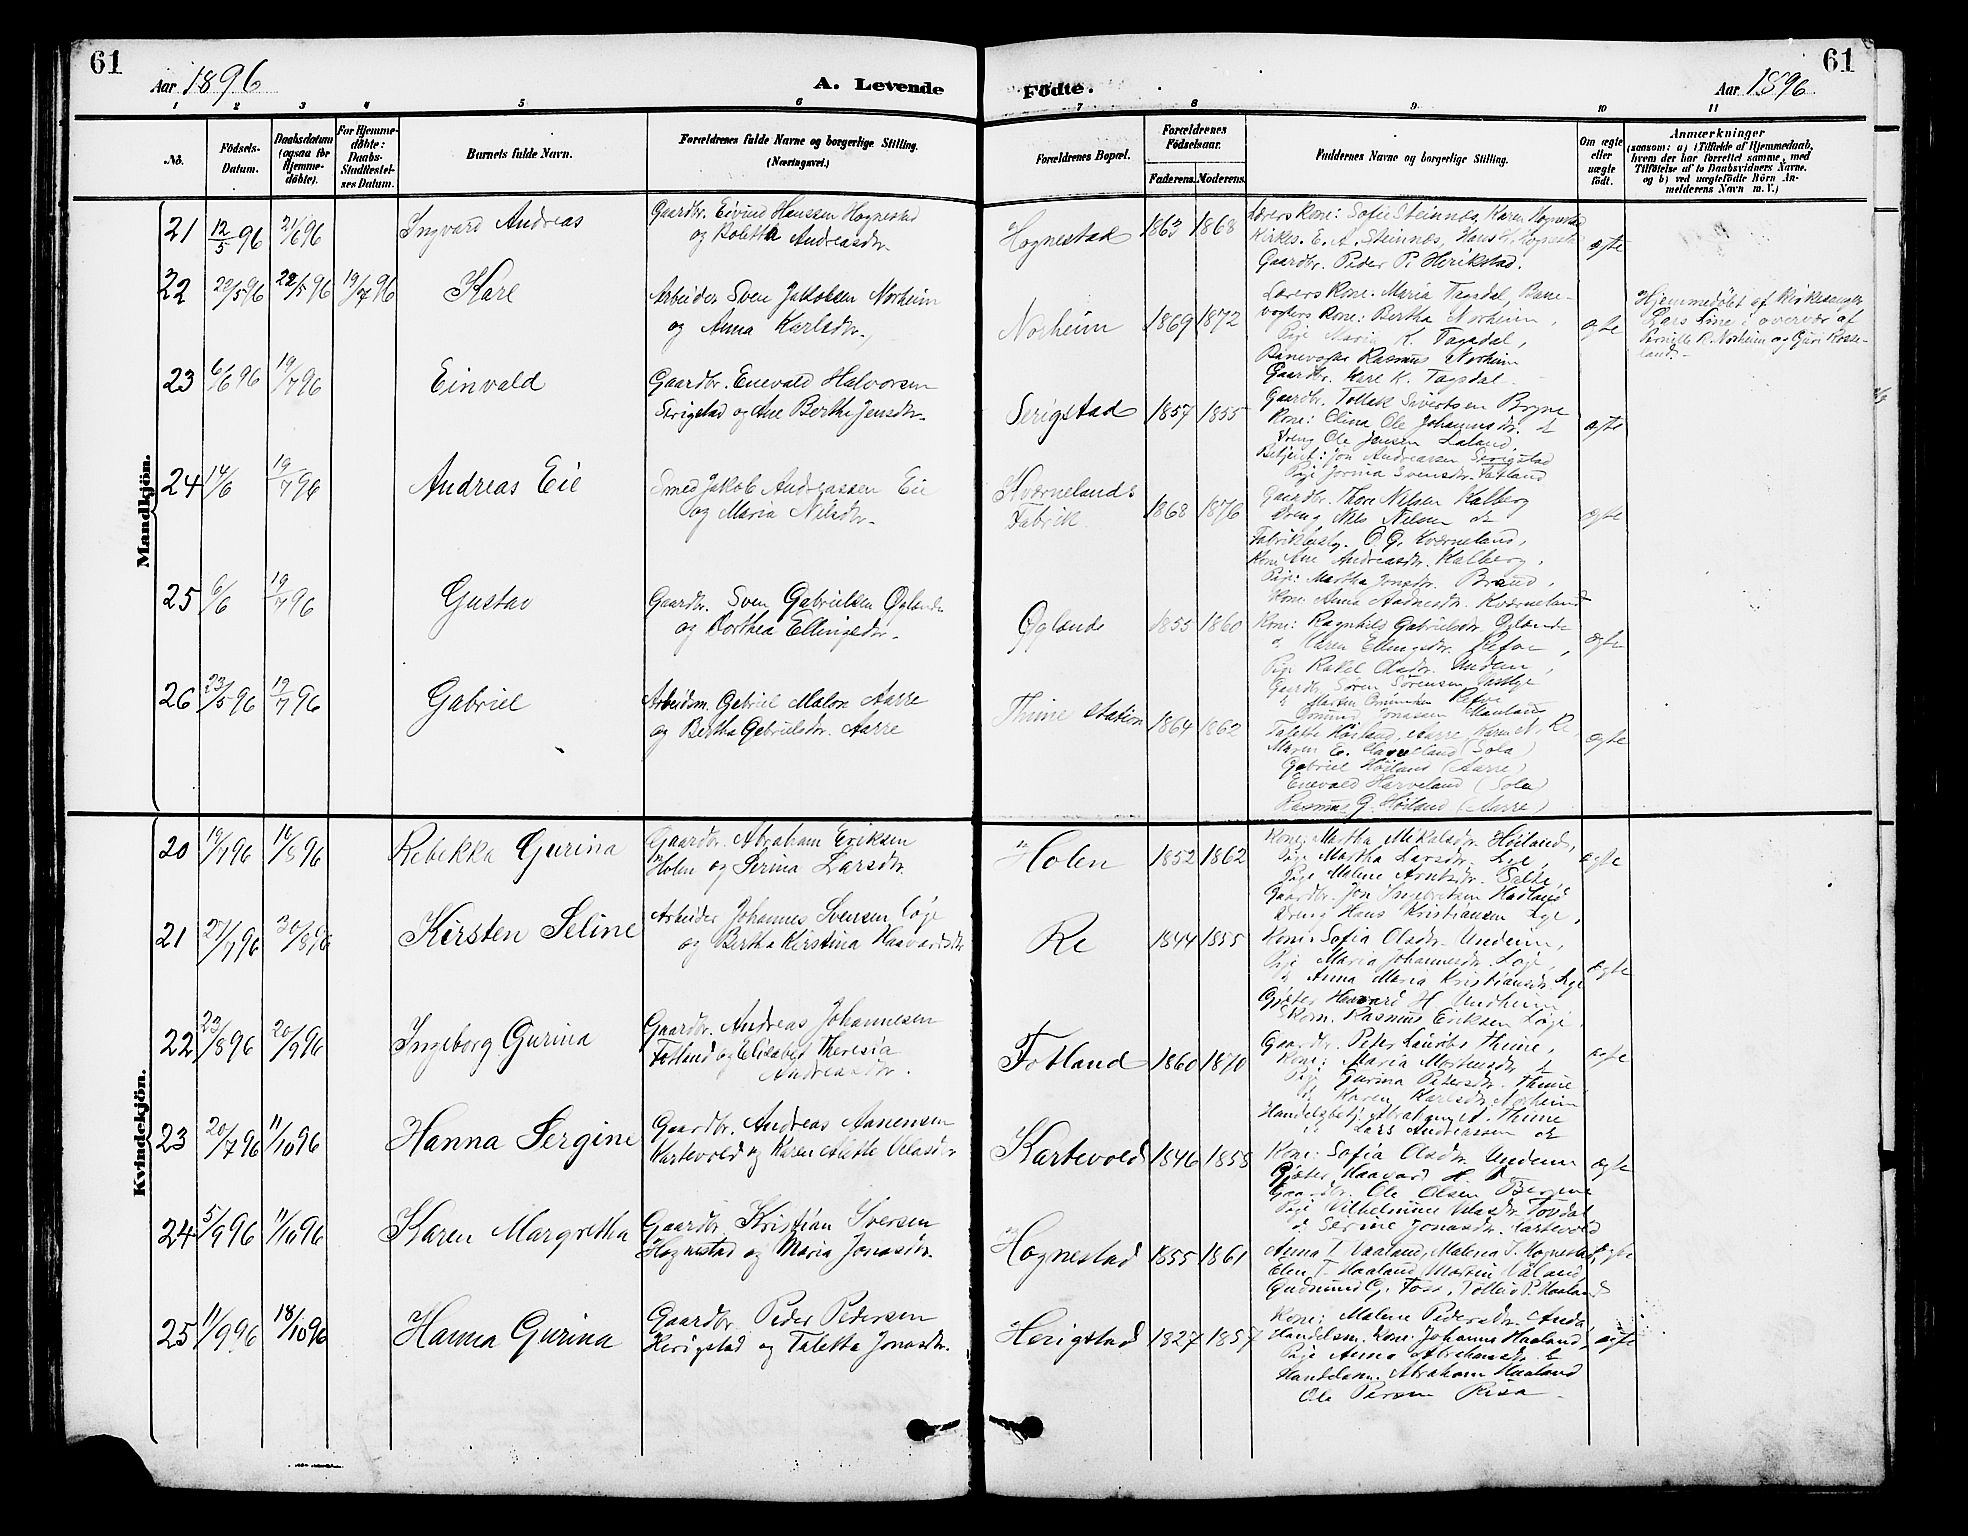 61
Aar 1896
A. Levende
1 2 3 4 5 6
No.
Fødsels-
Datum.
Daabsdatum
(ogsaa for
Hjemme-
døbte).
For Hjemme-
døbte:
Daabs-
Stadfæstel-
ses Datum.
Barnets fulde Navn.
Forældrenes fulde Navne og borgerlige Stilling.
(Næringsvei.)
Mandkjön.
21 12/5 96 21/6 96 Ingvard Andreas
Gaardbr. Eivind Hanssen Hognestad
og Bolette Andreasdr.
22 22/5 96 22/5 96 19/7 96 Karl
Arbeider Sven Jakobsen Norheim
og Anna Karlsdr.
23 6/6 96 19/7 96 Einvald
Gaardbr. Enevald Halvorsen
Serigstad og Ane Berthe Jensdr.
24 14/6 19/7 96 Andreas Eie
Smed Jakob Andreassen Eie
og Maria Nilsdr.
25 6/6 19/7 96 Gustav
Gaardbr. Sven Gabrielsen Øglænde
og Dorthea Ellingsdr.
26 23/5 96 12/7 96 Gabriel
Arbeidsm. Gabriel Malon Aarre
og Bertha Gabrielsdr. Aarre
Kvindekjön.
20 19/7 96 16/8 96 Rebekka Gurina
Gaardbr. Abraham Eriksen
Holen og Serina Larsdr.
21 27/7 96 30/8 96 Kirsten Seline
Arbeider Johannes Svensen Löge
og Bertha Kirstina Haavardsdr.
22 23/8 96 20/9 96 Ingeborg Gurina
Gaardbr. Andreas Johannesen
Fotland og Elisabed Theresia
Andreasdr.
23 20/7 96 11/10 96 Hanna Sergine
Gaardbr. Andreas Aanensen
Kartevold og Karen Malle Velasdr.
24 5/9 96 11/10 96 Karen Margretha
Gaardbr. Kristian Iversen
Hognestad og Maria Jonasdr.
25 11/9 96 18/10 96 Hanna Gurina
Gaardbr. Peder Pedersen
Herigstad og Taletta Jonasdr.
61
Födte.
Aar 1896
7 8 9 10 11
Forældrenes Bopæl.
Forældrenes
Födselsaar.
Faderens. Moderens.
Faddernes Navne og borgerlige Stilling.
Om ægte
eller
uægte
født.
Anmærkninger
(saasom: a) i Tilfælde af Hjemmedaab,
hvem der har forrettet samme, med
Tilføielse af to Daabsvidners Navne.
og b) ved uægtefödte Börn An-
melderens Navn m. V.)
Hognestad 1863 1868
Lærers Kone: Sofie Steinnes, Karen Hognestad
Kirkes. E. A. Steinnes, Hans H. Hognestad
Gaardbr. Peder P. Herikstad.
ægte
Norheim 1869 1872
Lærers Kone. Maria Tagsdal, Bane-
vogters Kone: Bertha Norheim,
Pige Maria K. Tagsdal,
Banevogter Rasmus Norheim
Gaardbr. Karl K. Tagsdal.
ægte
Hjemmedøbt af Kirkesanger
Lars Line i overvær af
Pernille R. Norheim og Guri Rosse-
land.
Serigstad 1857 1855
Gaardbr. Tollak Sivertsen Bryne
Kone: Elina Ole Johannesdr. &
Dreng Ole Jensen Laland,
Betjent: Jon Andreassen Serigstad
Pige Jorina Svensdr. Fotland
ægte
Kværnelands
Fabrik. 1868 1876
Gaardbr. Thore Nilsen Kalberg
Dreng Nils Nilsen &
O. G. Kværneland,
Kone Ane Andreasdr. Kalberg,
Pige: Martha Jonsdr. Braud,
Kone: Anna Aadnesdr. Kværneland
ægte
Øglænde 1855 1860
Kone: Ragnhild Gabrielsdr. Øglænde
& Karen Ellingsdr. Refve,
Pige Rakel Olsdr. Undem,
Gaardbr. Søren Sørensen
& Refve
Jonassen
ægte
Thime Station 1864 1862
Talette Høiland, Aarre Re,
Maren E. Harveland (Sola)
Gabriel Høiland (Aarre)
Enevald Harveland (Sola)
Rasmus G. Høiland (Aarre)
ægte
Holen 1852 1862
Kone: Martha Mikalsdr. Höiland,
Pige Martha Larsdr. Lye,
Pige Malene Arntsdr. Salte,
Gaardbr. Jon Ingebretsen Hadland
Dreng Hans Kristiansen Lye,
ægte
Re 1844 1855
Kone: Sofia Olsdr. Undeim,
Pige Maria Johannesdr. Löge,
& Anna Maria Kristiansdr. Lye
Gjæter Haavard H. Undheim
Rasmus Eriksen Löge,
ægte
Fotland 1860 1870
Gaardbr. Peter Laurits Thime,
Kone: Maria Mortensdr. &
Pige Gurina Petersdr. Thime
& Karen Karlsdr. Norheim
Handelsbetj. Abraham A. Thime
& Lars Andreassen &
ægte
Kartevold 1846 1858
Kone: Sofia Olsdr. Undeim
Gjæter Haavard H. &
Gaardbr. Ole Olsen Bergene
Pige Vilhelmine Velasdr. Fosdal
& Serine Jonasdr. Kartevold
ægte
Hognestad 1855 1861
Anna T. Vaaland, Malena T. Hognestad,
Elen T. Haaland, Martin Våland
Gudmund G. Foss, Tollev P. Haaland
ægte
Herigstad 1827 1857
Kone: Malene Pedersdr. Anda,
Handelsm. Kone: Johanne Haaland,
Pige Anna Abrahamsdr. &
Handelsm. Abraham Haaland
Ole Risa
ægte